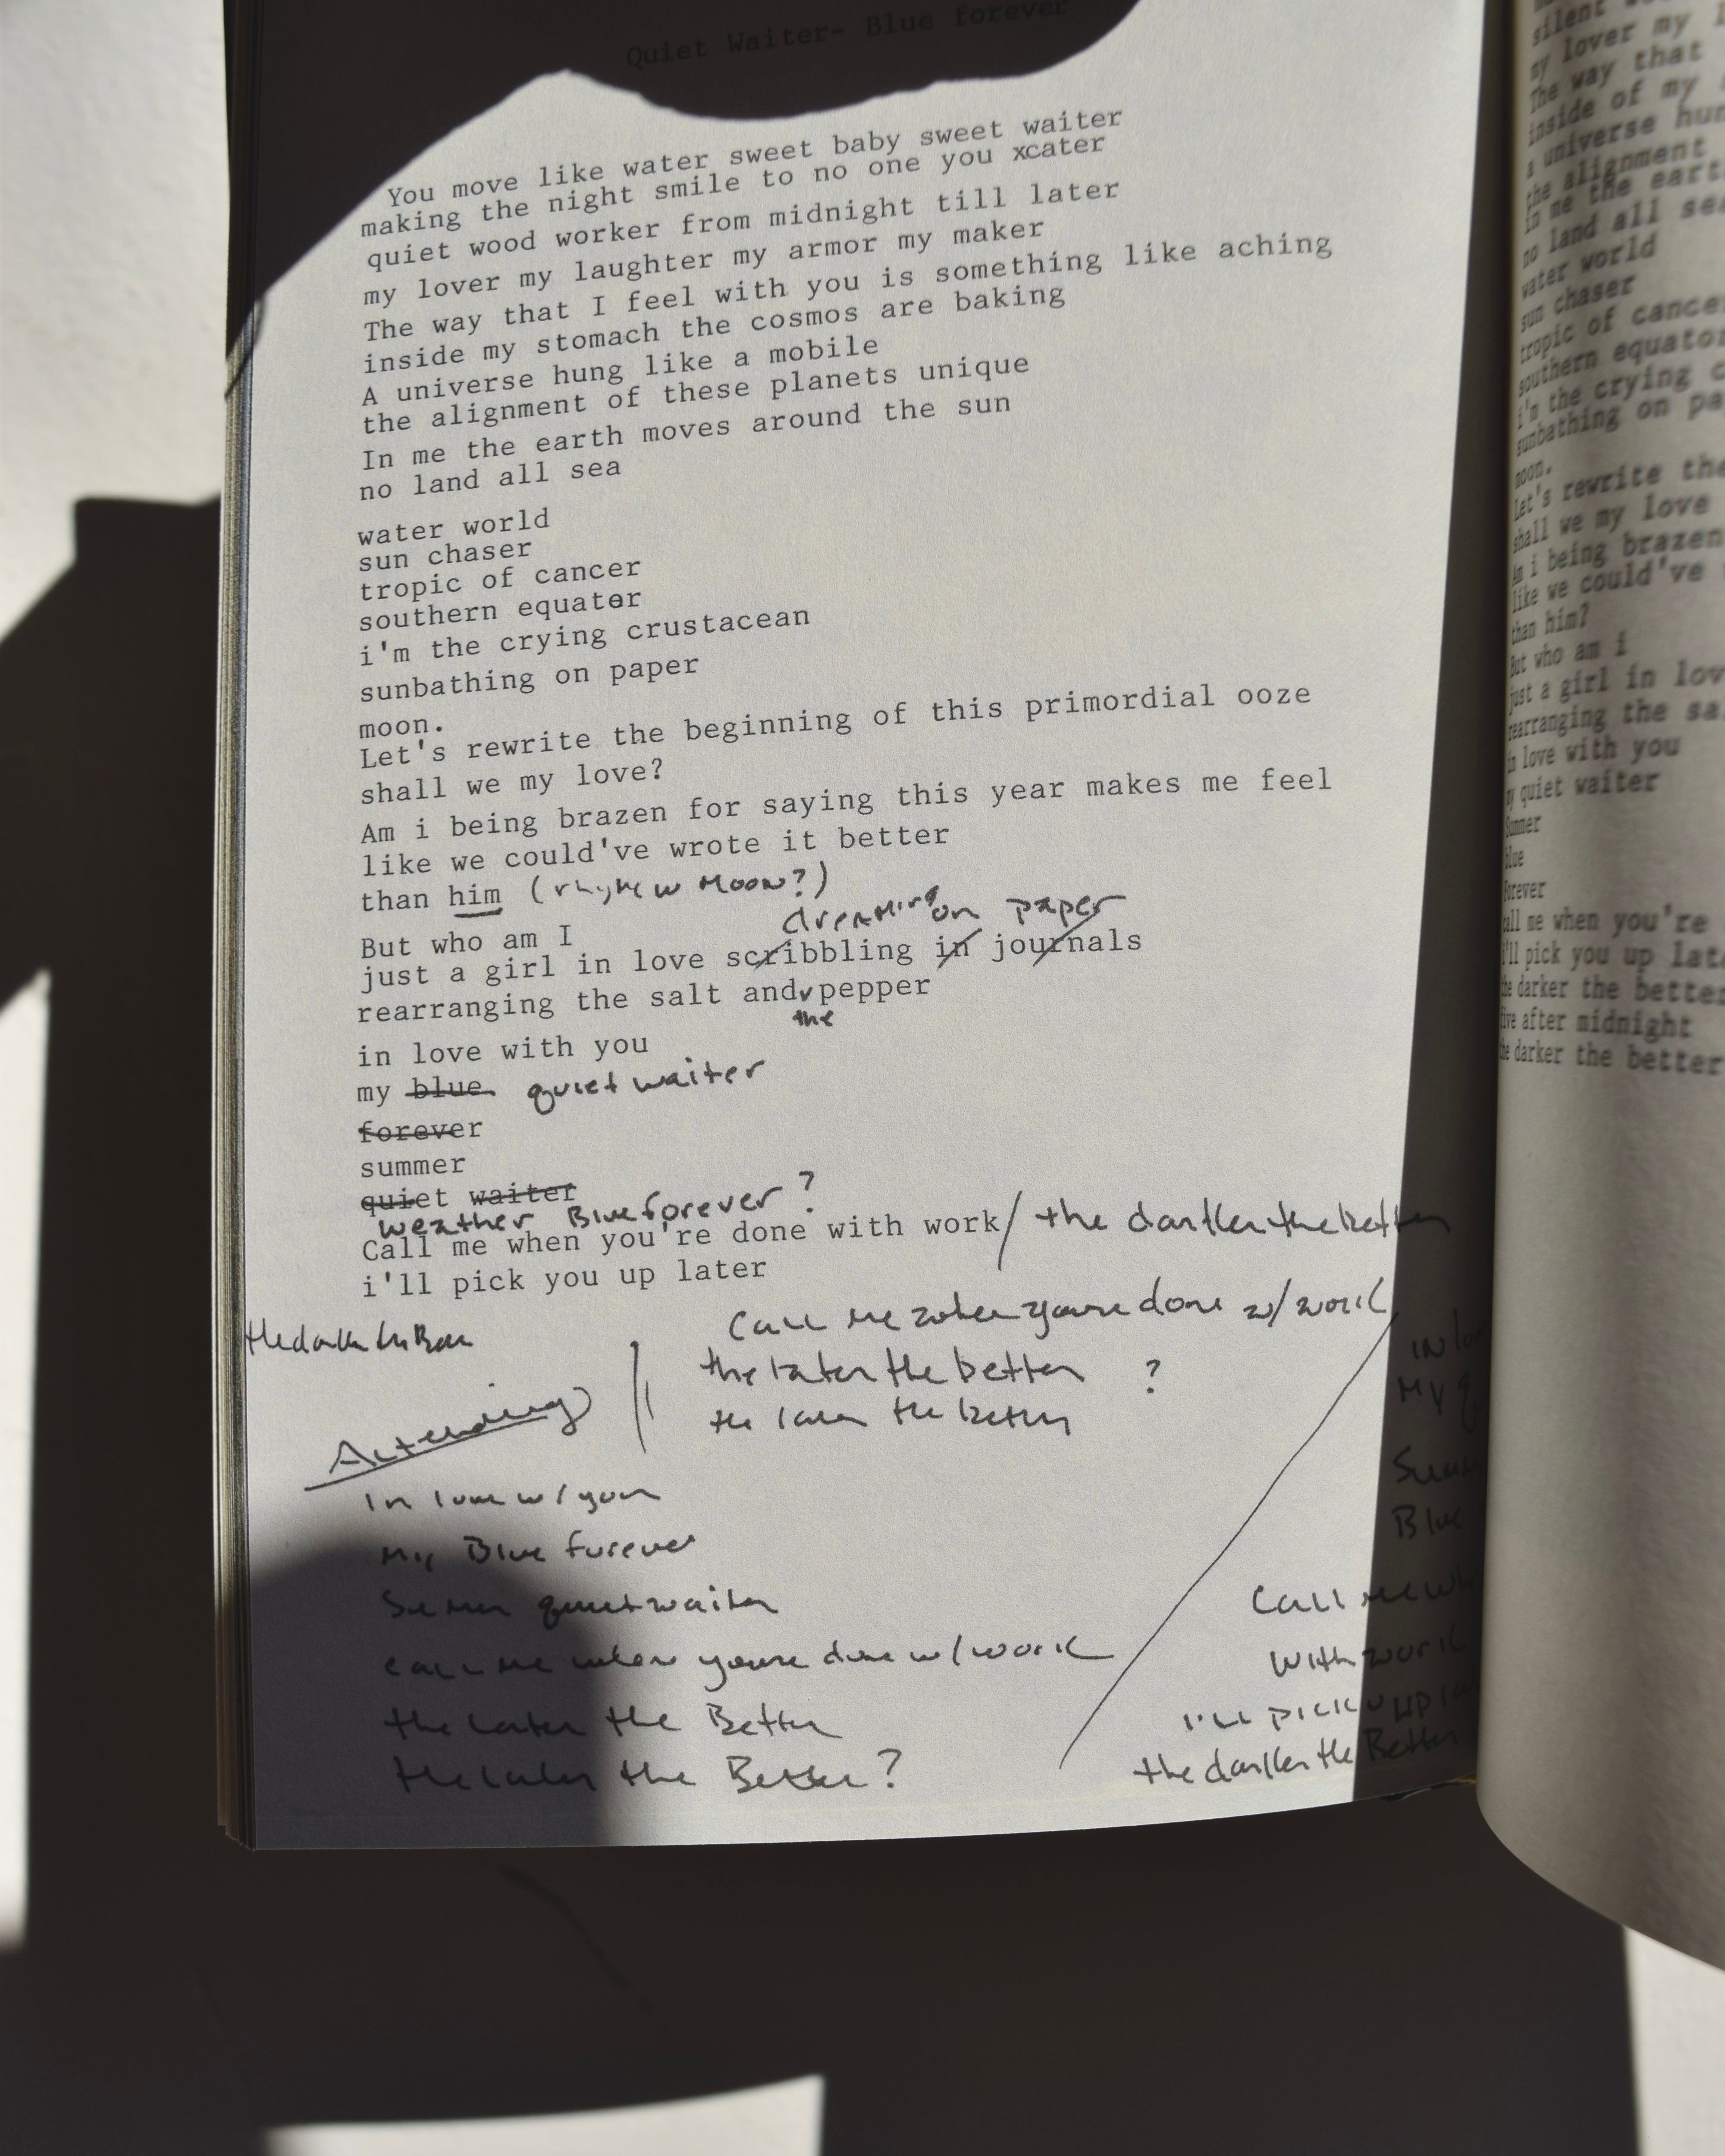 Quiet Waiter- Blue forever
You move like water sweet baby sweet waiter
making the night smile to no one you xcater
quiet wood worker from midnight till later
my lover my laughter my armor my maker
The way that I feel with you is something like aching
inside my stomach the cosmos are baking
A universe hung like a mobile
the alignment of these planets unique
In me the earth moves around the sun
no land all sea
water world
sun chaser
tropic of cancer
southern equator
i'm the crying crustacean
sunbathing on paper
moon.
Let's rewrite the beginning of this primordial ooze
shall we my love?
Am i being brazen for saying this year makes me feel
like we could've wrote it better
than him (rhyme w Moon?)
dreaming on paper
But who am I
just a girl in love scribbling in journals
rearranging the salt and pepper
the
in love with you
my blue quiet waiter
forever
summer
quiet waiter
weather Blue forever?
Call me when you're done with work/ the darker the better
i'll pick you up later
Call me when youre done w/ work
the later the better ?
the later the better
In love w/ you
My Blue forever
Summer quiet waiter
call me when youre done w/ work
the later the Better
the later the Better?
Blue
Call me
With work
I'll pick u up
the darker the Better
silent
my lover my
The way that
inside of my
a universe hun
the alignment
in me the earth
no land all sea
water world
sun chaser
tropic of cancer
southern equator
i'm the crying
sunbathing on pa
moon.
Let's rewrite the
shall we my love
Am i being brazen
like we could've
than him?
But who am i
just a girl in lov
rearranging the sa
in love with you
my quiet waiter
Summer
blue
Forever
call me when you're
i'll pick you up lat
the darker the better
five after midnight
the darker the better